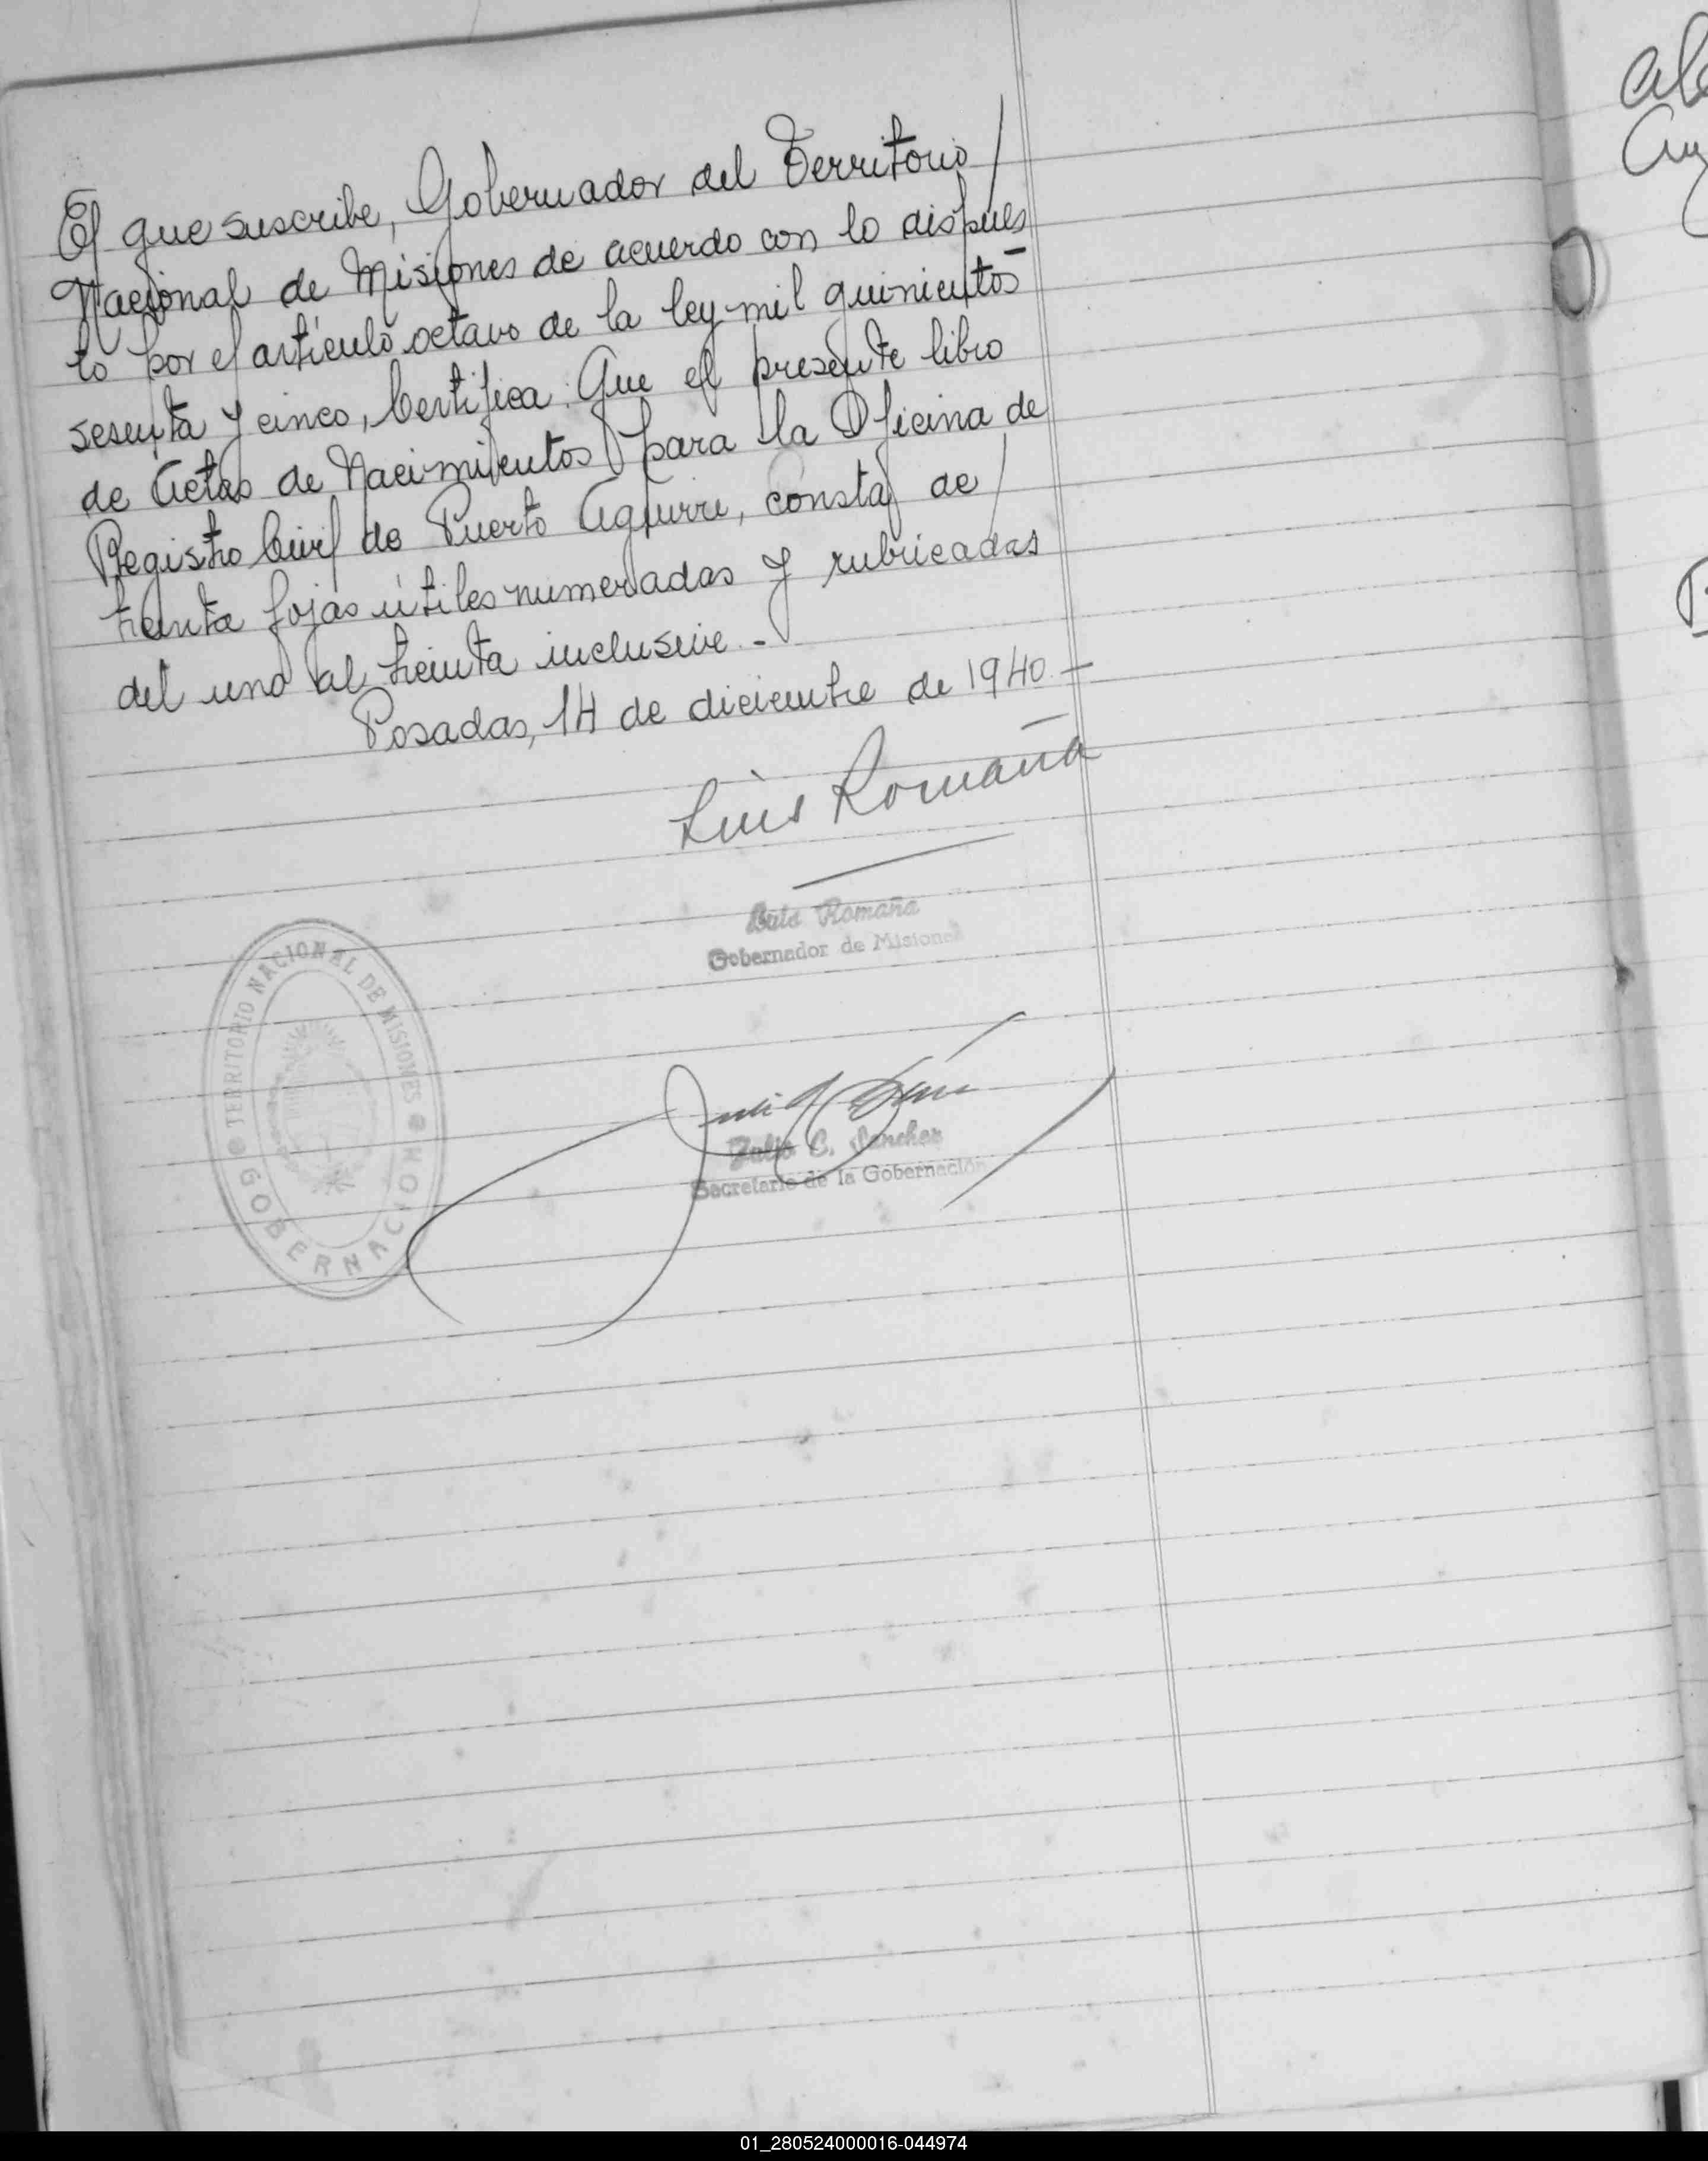 El que suscribe, Gobernador del Territorio
Nacional de Misiones de acuerdo con lo dispues
to por el artículo octavo de la ley mil quinientos
sesenta y cinco, Certifica: Que el presente libro
de Actas de Nacimientos para la Oficina de
Registro Civil de Puerto Aguirre, consta de
treinta fojas útiles numeradas y rubricadas
del uno al treinta inclusive.-
Posadas, 14 de diciembre de 1940.-
Luis Romaña
Luis Romaña
Gobernador de Misiones
TERRITORIO NACIONAL DE MISIONES
GOBERNACION
Julio C. Sanchez
Secretario de la Gobernación
01_280524000016-044974